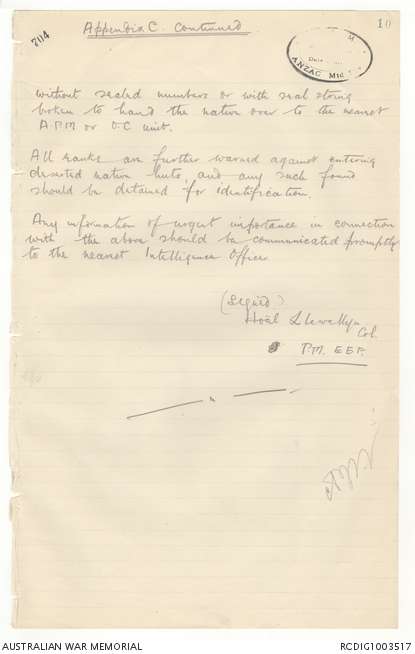 Appendix C. Continued
10
704
M
Date
ANZAC Mtd
without sealed numbers or with seal string
broken to hand the native over to the nearest
A.P.M or O.C unit.
All ranks are further warned against entering
deserted native huts, and any such found
should be detained for identification.
Any information of urgent importance in connection
with the above should be communicated promptly
to the nearest Intelligence Officer
(Signed)
Hoël Llewellyn
Col.
P.M. E.E.F.
AUSTRALIAN WAR MEMORIAL
RCDIG1003517